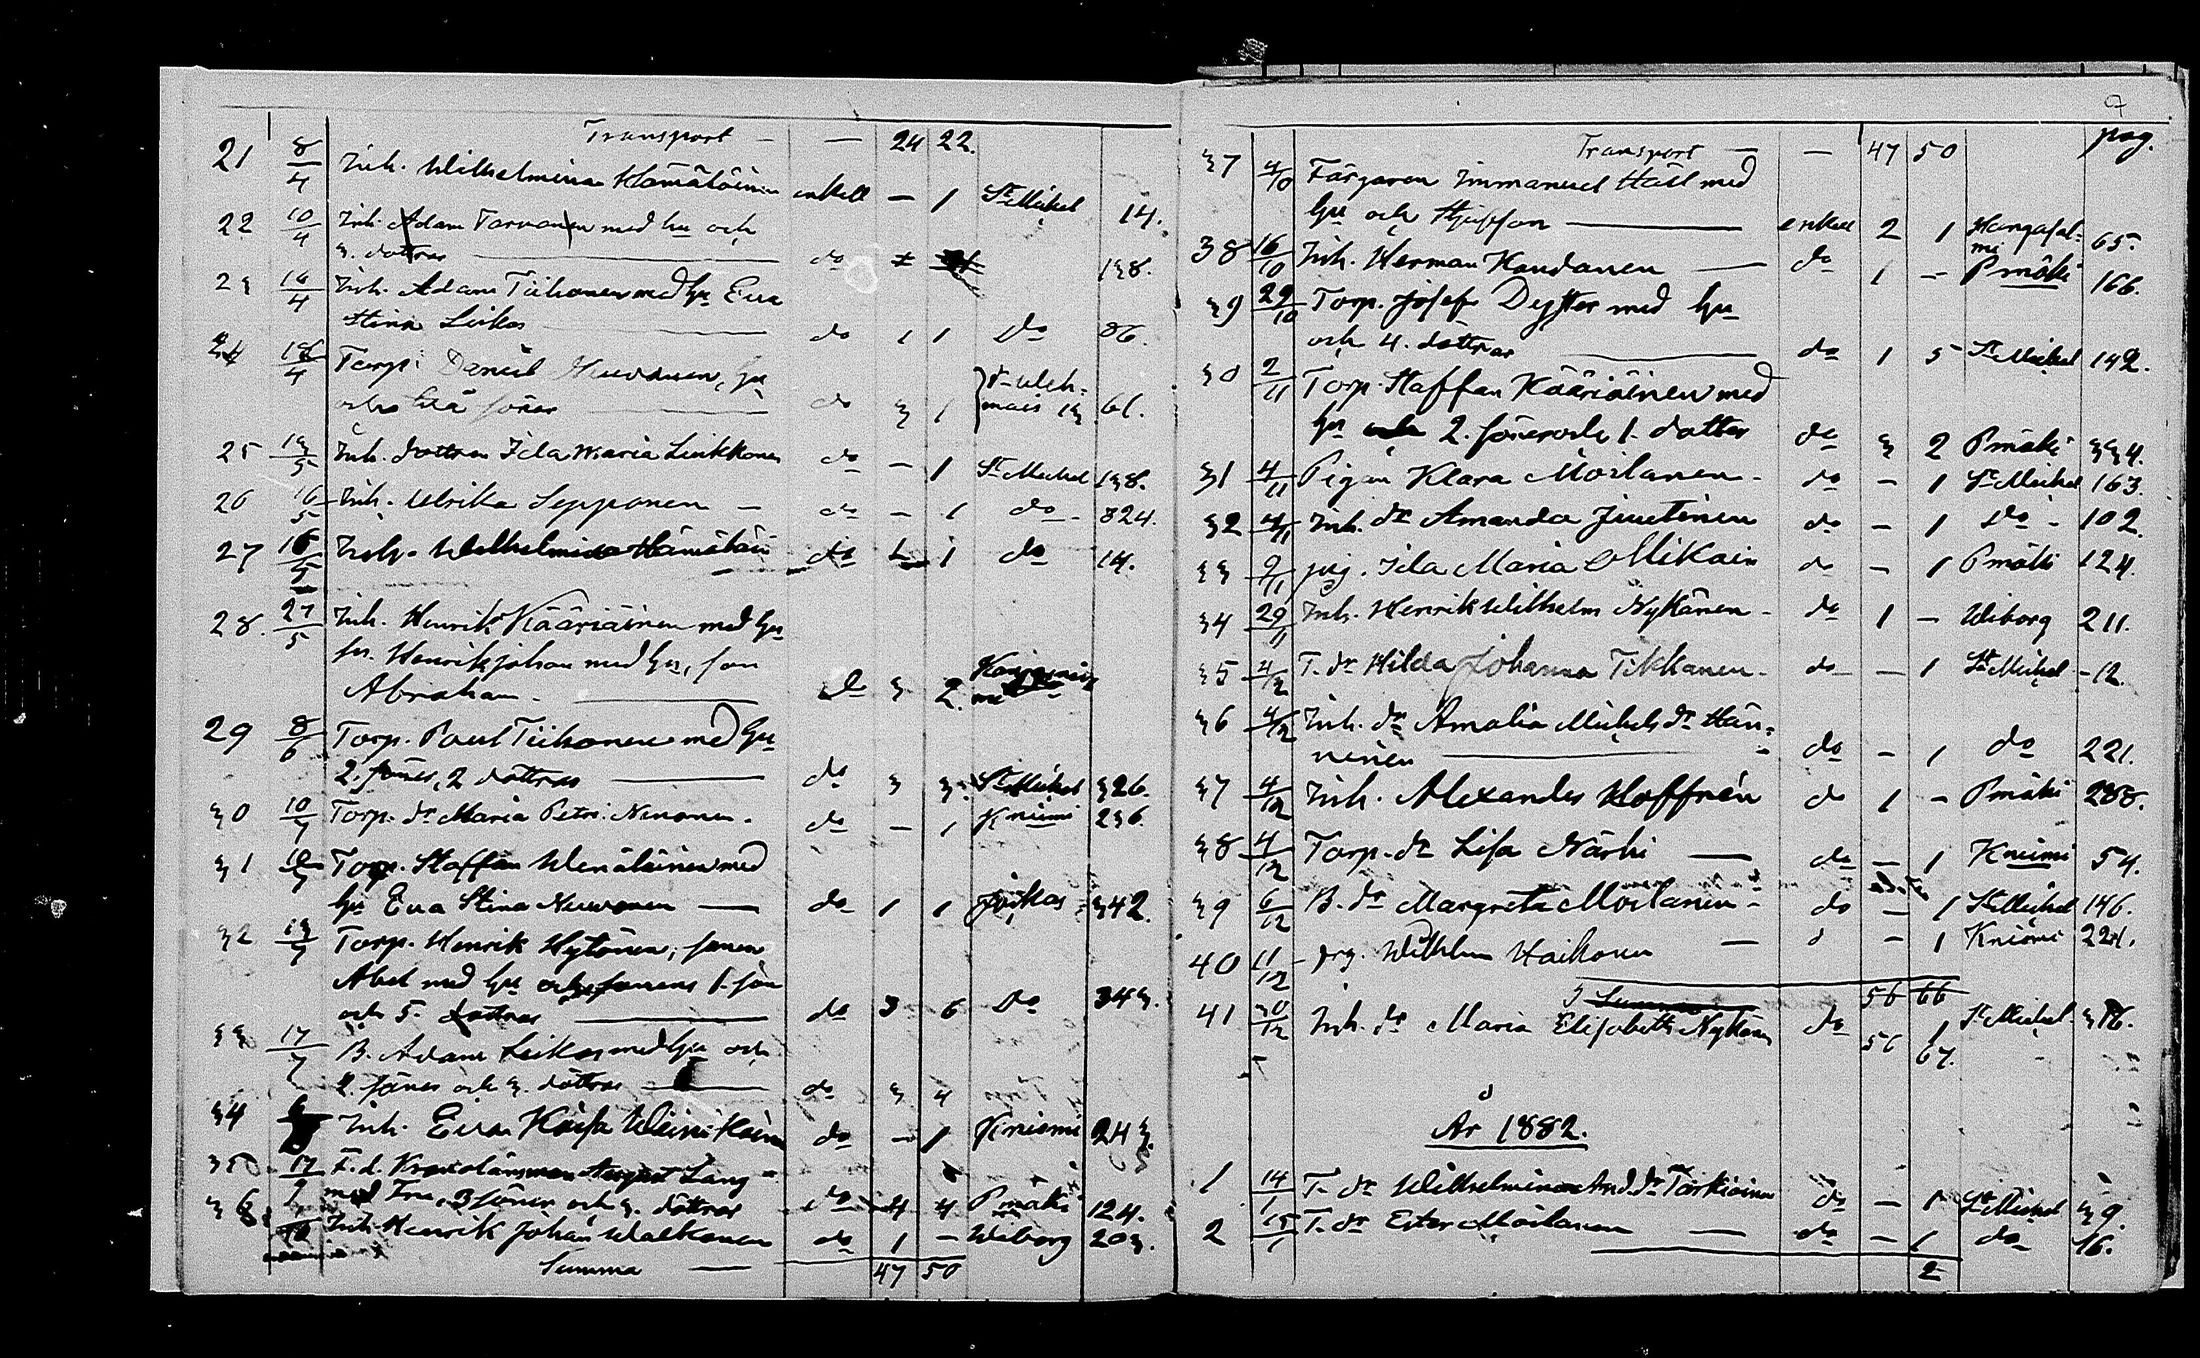 Transport — — 24 22.
21 8/4 Inh. Wilhelmina Hämäläinen enkell — 1 St Michel 14.
22 10/4 Inh. Adam Tarvonen med hu och
3. dottrar do 138.
23 16/4 Inh. Adam Tiihonen med hu Eva
Stina Leikas do 1 1 Do 86.
24 18/4 Torp. Daniel Neuvonen, hu
och två söner do 3 1 61.
25 13/5 Inh. dottren Ida Maria Liukkonen do — 1 St Michel 138.
26 16/5 Inh. Ulrika Sepponen — do — 1 do 824.
27 16/5 Inh. Wilhelmina Hämäläin do 1 do 14.
28. 27/5 Inh. Henrik Kääriäinen med hu
sn. Henrik Johan med hu, son
Abraham — do 3 2.
29 8/6 Torp. Paul Tiihonen med hu
2. söner, 2 döttrar do 3 3. St Michel 326.
30 10/7 Torp. dr Maria Petri. Nenonen. do — 1 Kniemi 236.
31 Torp. Staffan Wenäläinen med
hu Eva Stina Neuvonen — do 1 1 Jorkas 342.
32 13/7 Torp. Henrik Hytönen, sonen
Abel med hu och sonens 1. son
och 5. dottrar do 3 6 Do 343.
33 17/7 B. Adam Leikas med hu och
2. söner och 3. döttrar do 3 4
34 Inh. Eva Kaisa Weini Kainen do — 1 Kniemi 243.
35 17 F. d. Kronolänsman August Lang
med Fru, 3 söner och 3. döttrar do 4 4 Pmäki 124.
36 Inh. Henrik Johan Walkonen do 1 — Wiborg 203.
Summa — 47 50
pag.
Transport — — 47 50
37 4/10 Färgaren Immanuel Häll med
hu och Styfson enkell 2 1 Kangasal-
mi 65.
38 16/10 Inh. Herman Kandanen — do 1 — Pmäki 166.
39 29/10 Torp. Josef Dyster med hu
och 4. döttrar do 1 5 St Michel 142.
30 2/11 Torp. Staffan Kääriäinen med
hu 2. söner och 1. dotter do 3 2 Pmäki 334.
31 4/11 Pigan Klara Moilanen — do — 1 St Michel 163.
32 4/11 Inh. dr Amanda Juutinen do — 1 Do — 102.
33 9/11 pig. Ida Maria Mikain do — 1 Pmäki 124.
34 29/11 Inh. Henrik Wilhelm Nykänen — do 1 — Wiborg 211.
35 4/12 T. dr Hilda Johanna Tikkanen — do — 1 St Michel 12.
36 4/12 Inh. dr Amalia Michels dr Hän-
ninen do — 1 do 221.
37 4/12 Inh. Alexander Hoffrén do 1 — Pmäki 288.
38 4/12 Torp. dr Lisa Närhi — do — 1 Kniemi 54.
39 6/12 B. dr Margreta Moilanen — do — 1 St Michel 146.
40 11/12 drg. Wilhelm Haikonen — d — 1 Kniemi 224.
Summa 56 66
41 30/12 Inh. dr Maria Elisabeth Nykänen do 1 St Michel 316.
56 67.
År 1882.
1 14/1 T. dr Wilhelmina And. dr Tarkiainen do — 1 St Michel 39.
2 15/1 T. dr Ester Moilanen — do — 1 do 16.
2